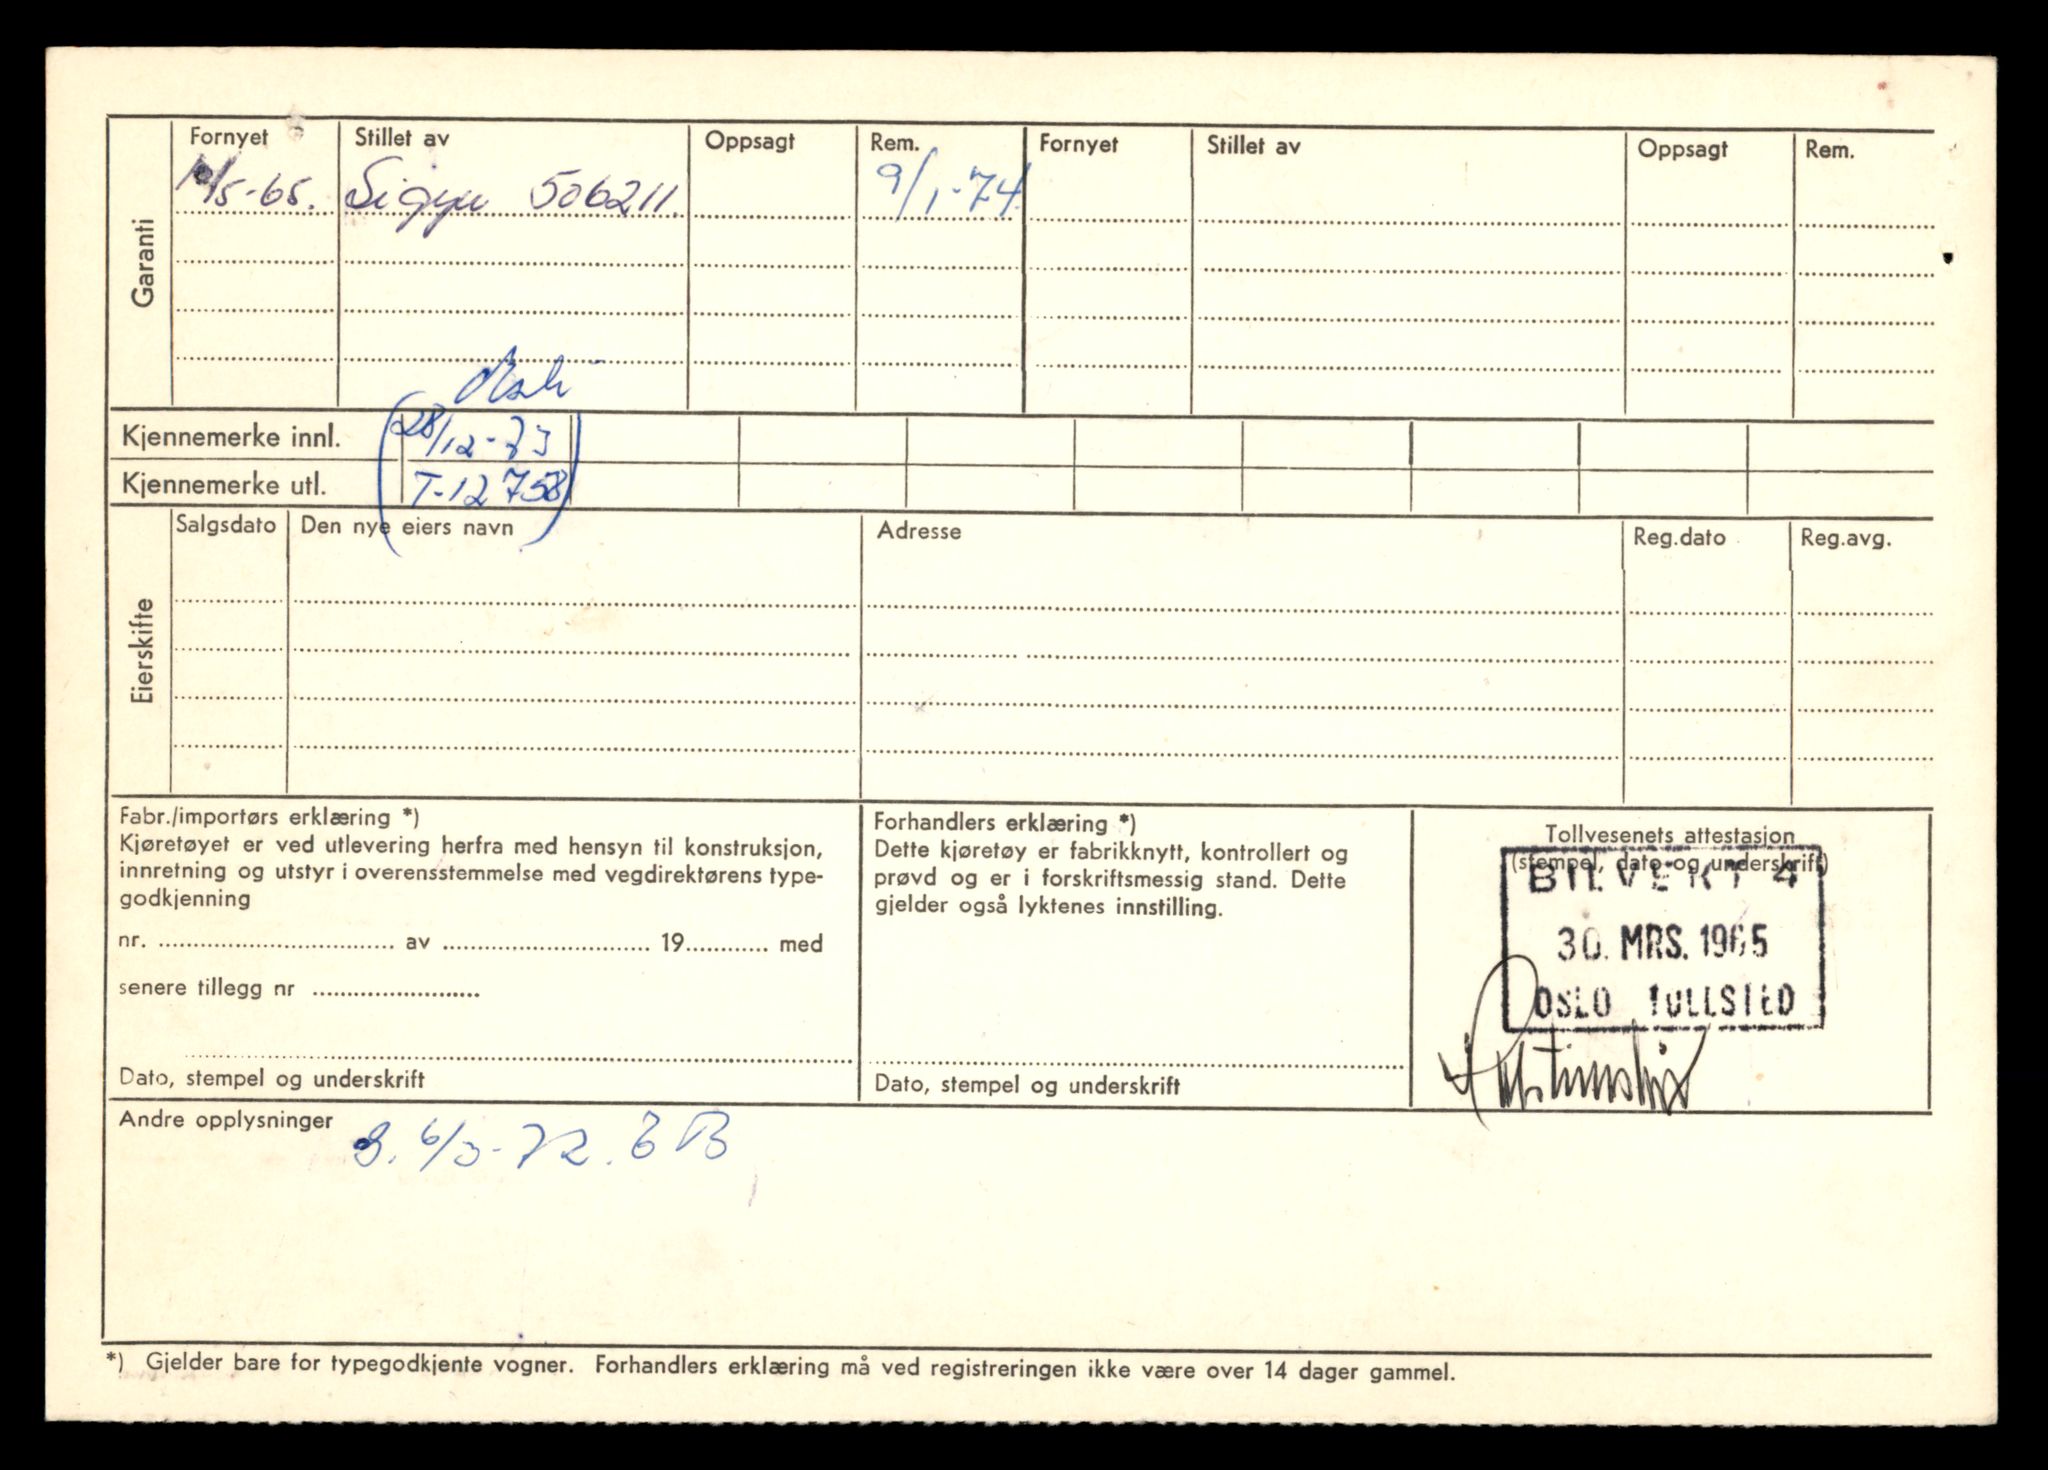 Garanti
Fornyet Stillet av Oppsagt Rem. Fornyet Stillet av Oppsagt Rem.
/5-65. Sigyn 506211. 9/1-74
Kjennemerke innl. 28/12-73
Kjennemerke utl. T-12758
Eierskifte
Salgsdato Den nye eiers navn Adresse Reg.dato Reg.avg.
Fabr./importørs erklæring *)
Kjøretøyet er ved utlevering herfra med hensyn til konstruksjon,
innretning og utstyr i overensstemmelse med vegdirektørens type-
godkjenning
nr. av 19 med
senere tillegg nr
Dato, stempel og underskrift
Forhandlers erklæring *)
Dette kjøretøy er fabrikknytt, kontrollert og
prøvd og er i forskriftsmessig stand. Dette
gjelder også lyktenes innstilling.
Dato, stempel og underskrift
Tollvesenets attestasjon
(stempel, dato og underskrift)
BILVEKT 4
30. MRS. 1965
OSLO TOLLSTED
Andre opplysninger
6/3-72. B
*) Gjelder bare for typegodkjente vogner. Forhandlers erklæring må ved registreringen ikke være over 14 dager gammel.